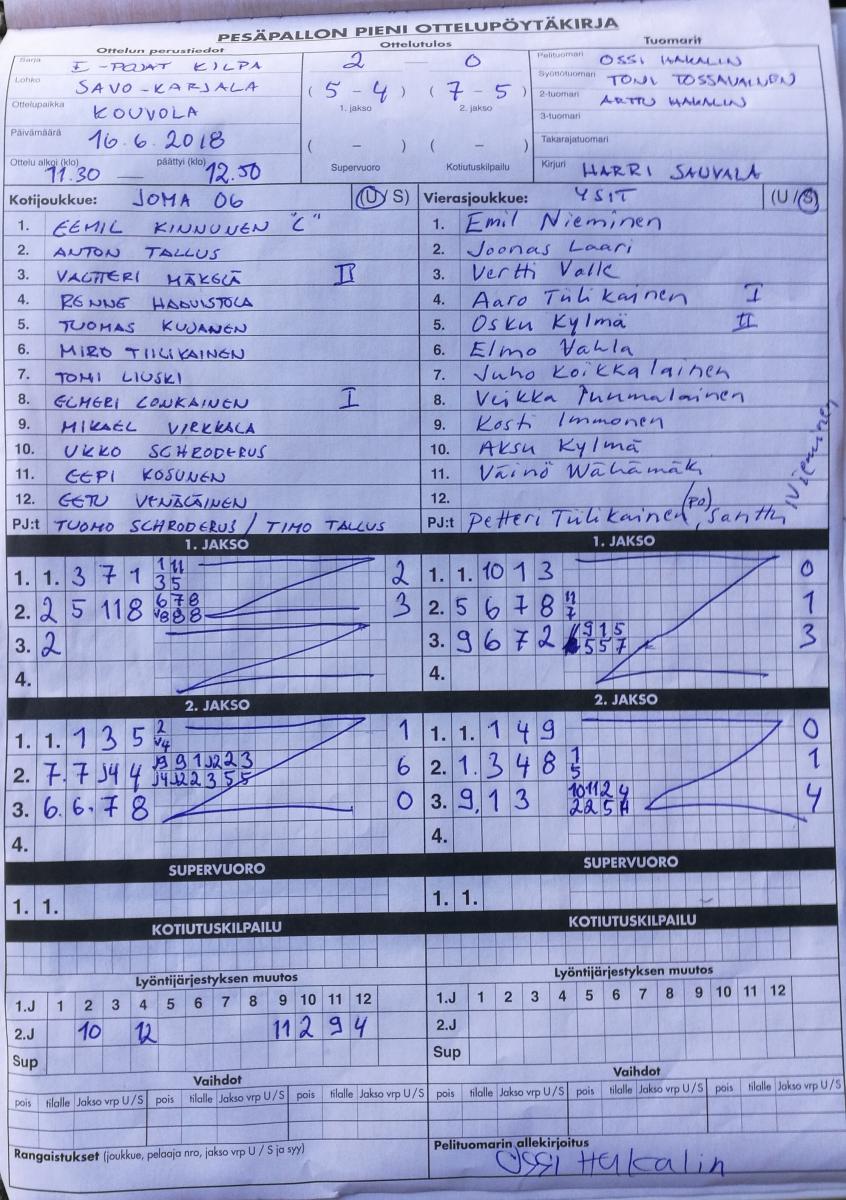 PESÄPALLON PIENI OTTELUPÖYTÄKIRJA
Ottelun perustiedot Ottelutulos Tuomarit
Sarja E-POJAT KILPA 2 0 Pelituomari OSSI HAKALIN
Lohko SAVO-KARJALA ( 5 - 4 ) ( 7 - 5 ) Syöttötuomari TONI TOSSAVAINEN
Ottelupaikka KOUVOLA 1. jakso 2. jakso 2-tuomari ARTTU HAKALIN
3-tuomari
Päivämäärä 16.6.2018 ( - ) ( - ) Takarajatuomari
Ottelu alkoi (klo) 11.30 — päättyi (klo) 12.50 Supervuoro Kotiutuskilpailu Kirjuri HARRI SAUVALA
Kotijoukkue: JOMA 06 (U/S) Vierasjoukkue: YSIT (U/S)
1. EEMIL KINNUNEN "C" 1. Emil Nieminen
2. ANTON TALLUS 2. Joonas Laari
3. VALTTERI MÄKELÄ II 3. Vertti Valle
4. RENNE HAAVISTOLA 4. Aaro Tiilikainen I
5. TUOMAS KUJANEN 5. Osku Kylmä II
6. MIRO TIILIKAINEN 6. Elmo Vahla
7. TOMI LIUSKI 7. Juho Koikkalainen
8. ELMERI LONKAINEN I 8. Veikka Puumalainen
9. MIKAEL VIRKKALA 9. Kosti Immonen
10. UKKO SCHRODERUS 10. Aksu Kylmä
11. EEPI KOSUNEN 11. Väinö Wähämäki
12. EETU VENÄLÄINEN 12.
PJ:t TUOMO SCHRODERUS / TIMO TALLUS PJ:t Petteri Tiilikainen (PO), Santtu Nieminen
1. JAKSO 1. JAKSO
1. 1. 3 7 1 2 1. 1. 10 1 3 0
2. 2 5 11 8 3 2. 5 6 7 8 11 7 1
3. 2 3. 9 6 7 2 3
4. 4.
2. JAKSO 2. JAKSO
1. 1. 1 3 5 1 1. 1. 1 4 9 0
2. 7. 7 4 6 2. 1. 3 4 8 1 5 1
3. 6. 6. 7 8 0 3. 9, 1 3 4
4. 4.
SUPERVUORO SUPERVUORO
1. 1. 1. 1.
KOTIUTUSKILPAILU KOTIUTUSKILPAILU
Lyöntijärjestyksen muutos Lyöntijärjestyksen muutos
1.J 1 2 3 4 5 6 7 8 9 10 11 12 1.J 1 2 3 4 5 6 7 8 9 10 11 12
2.J 10 12 11 2 9 4 2.J
Sup Sup
Vaihdot Vaihdot
pois tilalle Jakso vrp U/S pois tilalle Jakso vrp U/S pois tilalle Jakso vrp U/S pois tilalle Jakso vrp U/S pois tilalle Jakso vrp U/S pois tilalle Jakso vrp U/S
Rangaistukset (joukkue, pelaaja nro, jakso vrp U / S ja syy) Pelituomarin allekirjoitus
Ossi Hakalin